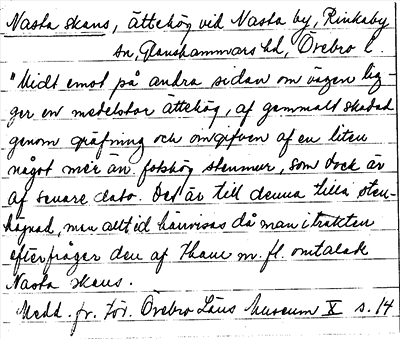 Nasta skans, ättehög vid Nasta by, Rinkaby
sn, Glanshammars hd, Örebro l.
"Midt emot på andra sidan om vägen lig-
ger en medelstor ättehög, af gammalt skadad
genom gräfning och omgifven af en liten
något mer än fotshög stenmur, som dock är
af senare dato. Det är till denna lilla sten-
högnad, men alltid hänvisas då man i trakten
efterfrågar den af Tham m. fl. omtalade
Nasta skans.
Medd. fr. För. Örebro Läns Museum X s. 14